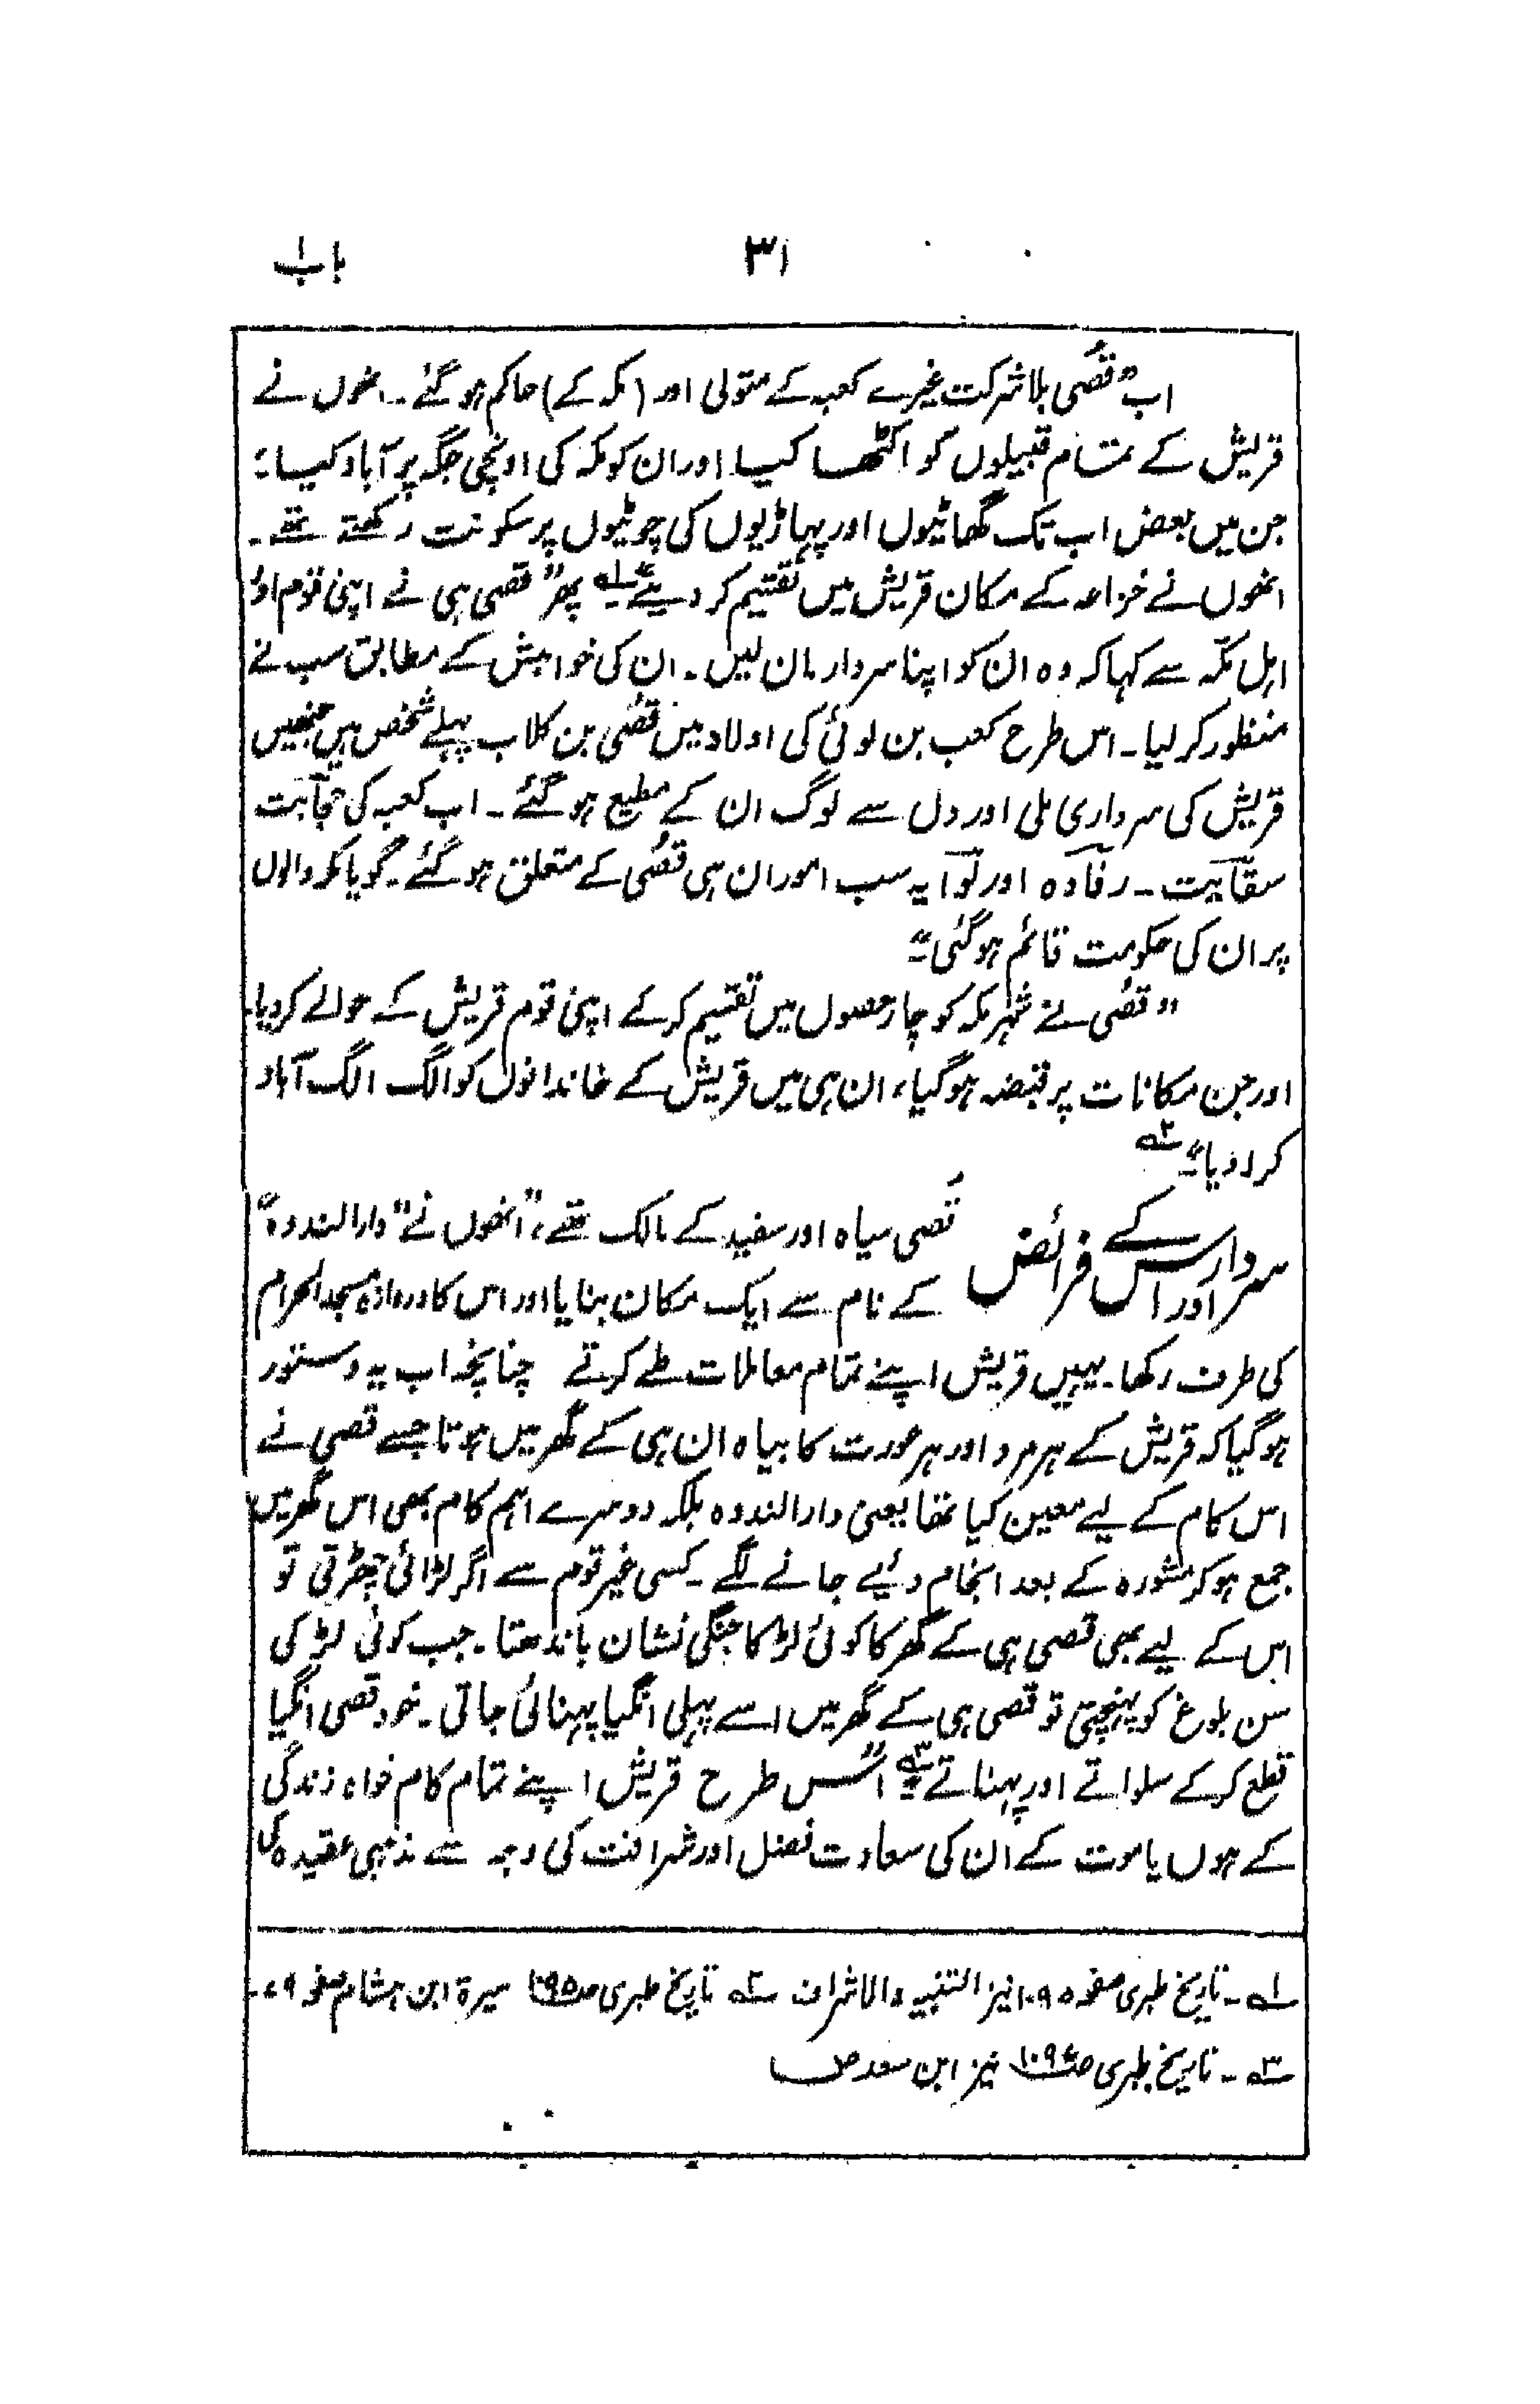 باب ۱
۳۱
اب ”قُصَی بلا شرکت غیرے کعبہ کے متولی اور (مکہ کے) حاکم ہو گئے۔ انھوں نے
قریش کے تمام قبیلوں کو اکٹھا کیا اور ان کو مکہ کی اونچی جگہ پر آباد کیا؛
جن میں بعض اب تک گھاٹیوں اور پہاڑیوں کی چوٹیوں پر سکونت رکھتے تھے۔
انھوں نے خزاعہ کے مکان قریش میں تقسیم کر دیئے“ ۱؎ پھر ”قصی ہی نے اپنی قوم اور
اہل مکہ سے کہا کہ وہ ان کو اپنا سردار مان لیں۔ ان کی خواہش کے مطابق سب نے
منظور کر لیا۔ اس طرح کعب بن لوئی کی اولاد میں قُصَی بن کلاب پہلے شخص ہیں جنھیں
قریش کی سرداری ملی اور دل سے لوگ ان کے مطیع ہو گئے۔ اب کعبہ کی حجابت
سقایت۔ رفادہ اور لوا یہ سب امور ان ہی قُصَی کے متعلق ہو گئے۔ گویا مکہ والوں
پر ان کی حکومت قائم ہو گئی“
”قصی نے شہر مکہ کو چار حصوں میں تقسیم کر کے اپنی قوم قریش کے حوالے کر دیا۔
اور جن مکانات پر قبضہ ہو گیا، ان ہی میں قریش کے خاندانوں کو الگ الگ آباد
کرا دیا“ ۲؎
سردار اور اس کے فرائض
قُصی سیاہ اور سفید کے مالک تھے، ”انھوں نے ”دار الندوہ“
کے نام سے ایک مکان بنایا اور اس کا دروازہ مسجد الحرام
کی طرف رکھا۔ یہیں قریش اپنے تمام معاملات طے کرتے چنانچہ اب یہ دستور
ہو گیا کہ قریش کے ہر مرد اور ہر عورت کا بیاہ ان ہی کے گھر میں ہوتا جسے قصی نے
اس کام کے لیے معین کیا تھا یعنی دار الندوہ بلکہ دوسرے اہم کام بھی اس گھر میں
جمع ہو کر مشورہ کے بعد انجام دئیے جانے لگے۔ کسی غیر قوم سے اگر لڑائی چھڑتی تو
اس کے لیے بھی قصی ہی کے گھر کا کوئی لڑکا جنگی نشان باندھتا۔ جب کوئی لڑکی
سن بلوغ کو پہنچتی تو قصی ہی کے گھر میں اسے پہلی انگیا پہنائی جاتی۔ خود قصی انگیا
قطع کر کے سلواتے اور پہناتے“ ۳؎ ”اس طرح قریش اپنے تمام کام خواہ زندگی
کے ہوں یا موت کے ان کی سعادت فضل اور شرافت کی وجہ سے مذہبی عقیدہ کی
۱؎۔ تاریخ طبری صفحہ ۱۰۹۵ نیز التنبیہ والاشراف ۲؎ تاریخ طبری ص ۱۰۹۵ سیرۃ ابن ہشام صفحہ ۷۹۔
۳؎۔ تاریخ طبری ص ۱۰۹۷ نیز ابن سعد ص